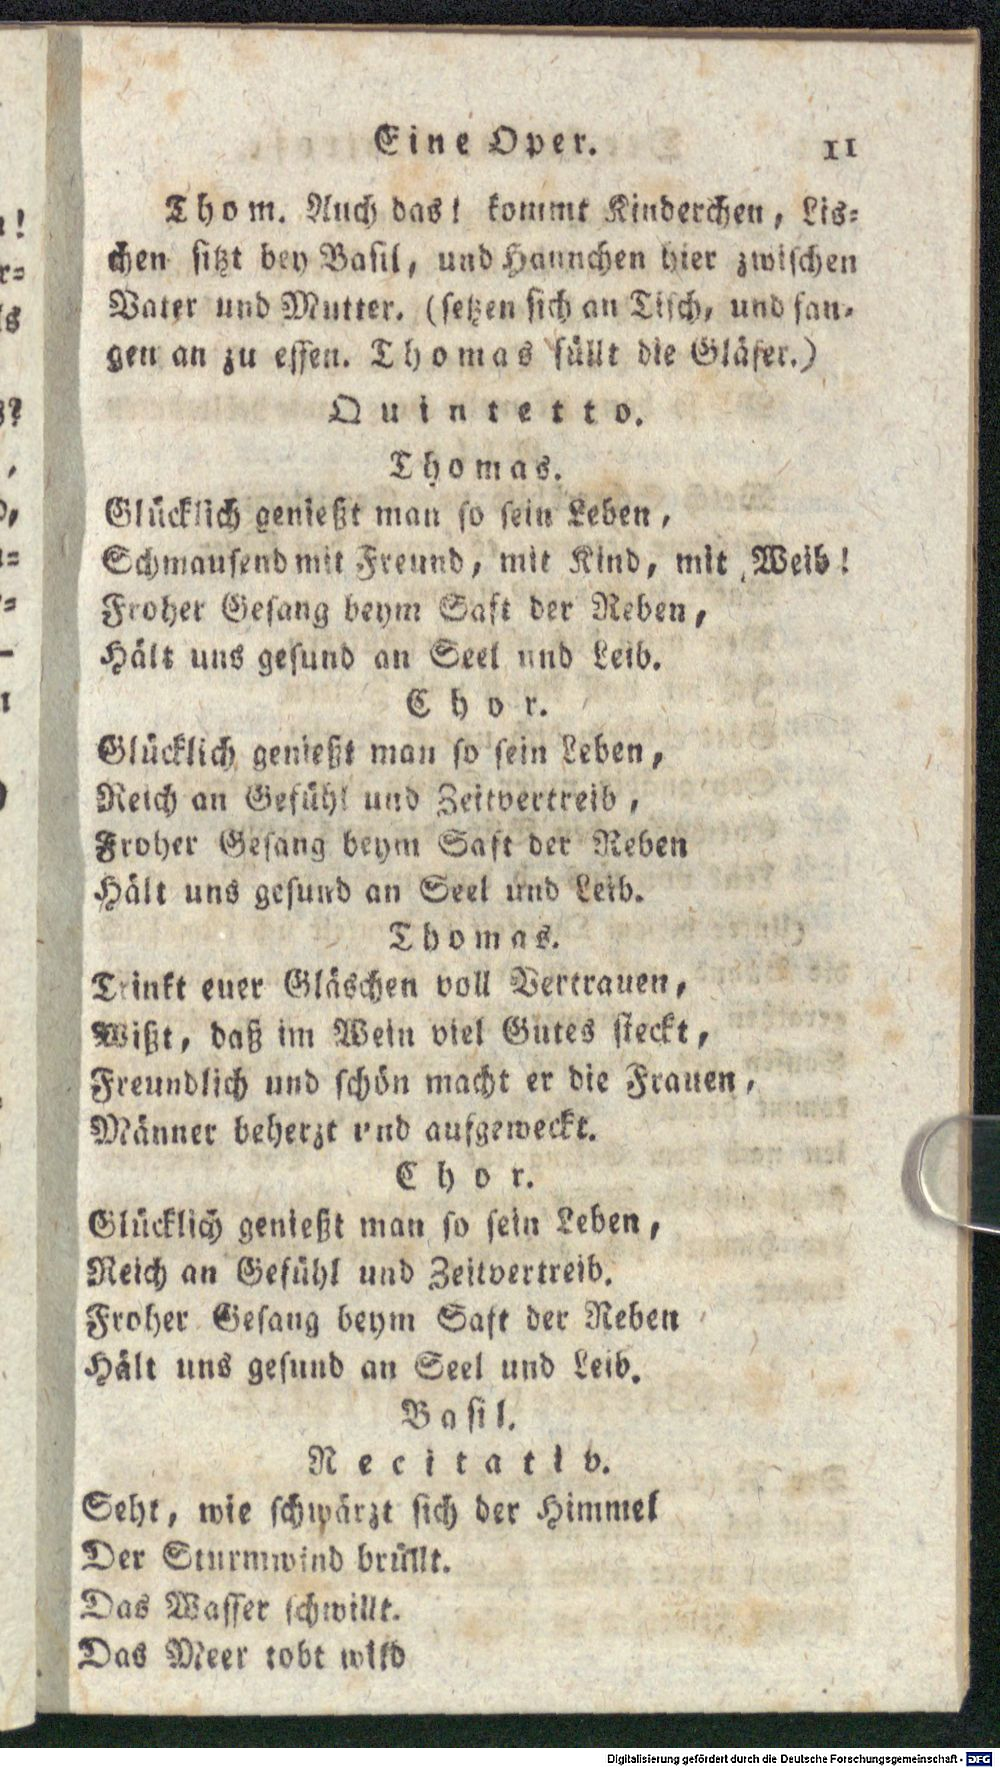 Eine Oper. 11
Thom. Auch das! kommt Kinderchen, Lis-
chen sitzt bey Basil, und Hannchen hier zwischen
Vater und Mutter. (setzen sich an Tisch, und fan-
gen an zu essen. Thomas füllt die Gläser.)
Quintetto.
Thomas.
Glücklich genießt man so sein Leben,
Schmausend mit Freund, mit Kind, mit Weib!
Froher Gesang beym Saft der Reben,
Hält uns gesund an Seel und Leib.
Chor.
Glücklich genießt man so sein Leben,
Reich an Gefühl und Zeitvertreib,
Froher Gesang beym Saft der Reben
Hält uns gesund an Seel und Leib.
Thomas.
Trinkt euer Gläschen voll Vertrauen,
Wißt, daß im Wein viel Gutes steckt,
Freundlich und schön macht er die Frauen,
Männer beherzt und aufgeweckt.
Chor.
Glücklich genießt man so sein Leben,
Reich an Gefühl und Zeitvertreib.
Froher Gesang beym Saft der Reben
Hält uns gesund an Seel und Leib.
Basil.
Recitativ.
Seht, wie schwärzt sich der Himmel
Der Sturmwind brüllt.
Das Wasser schwillt.
Das Meer tobt wild
Digitalisierung gefördert durch die Deutsche Forschungsgemeinschaft - DFG